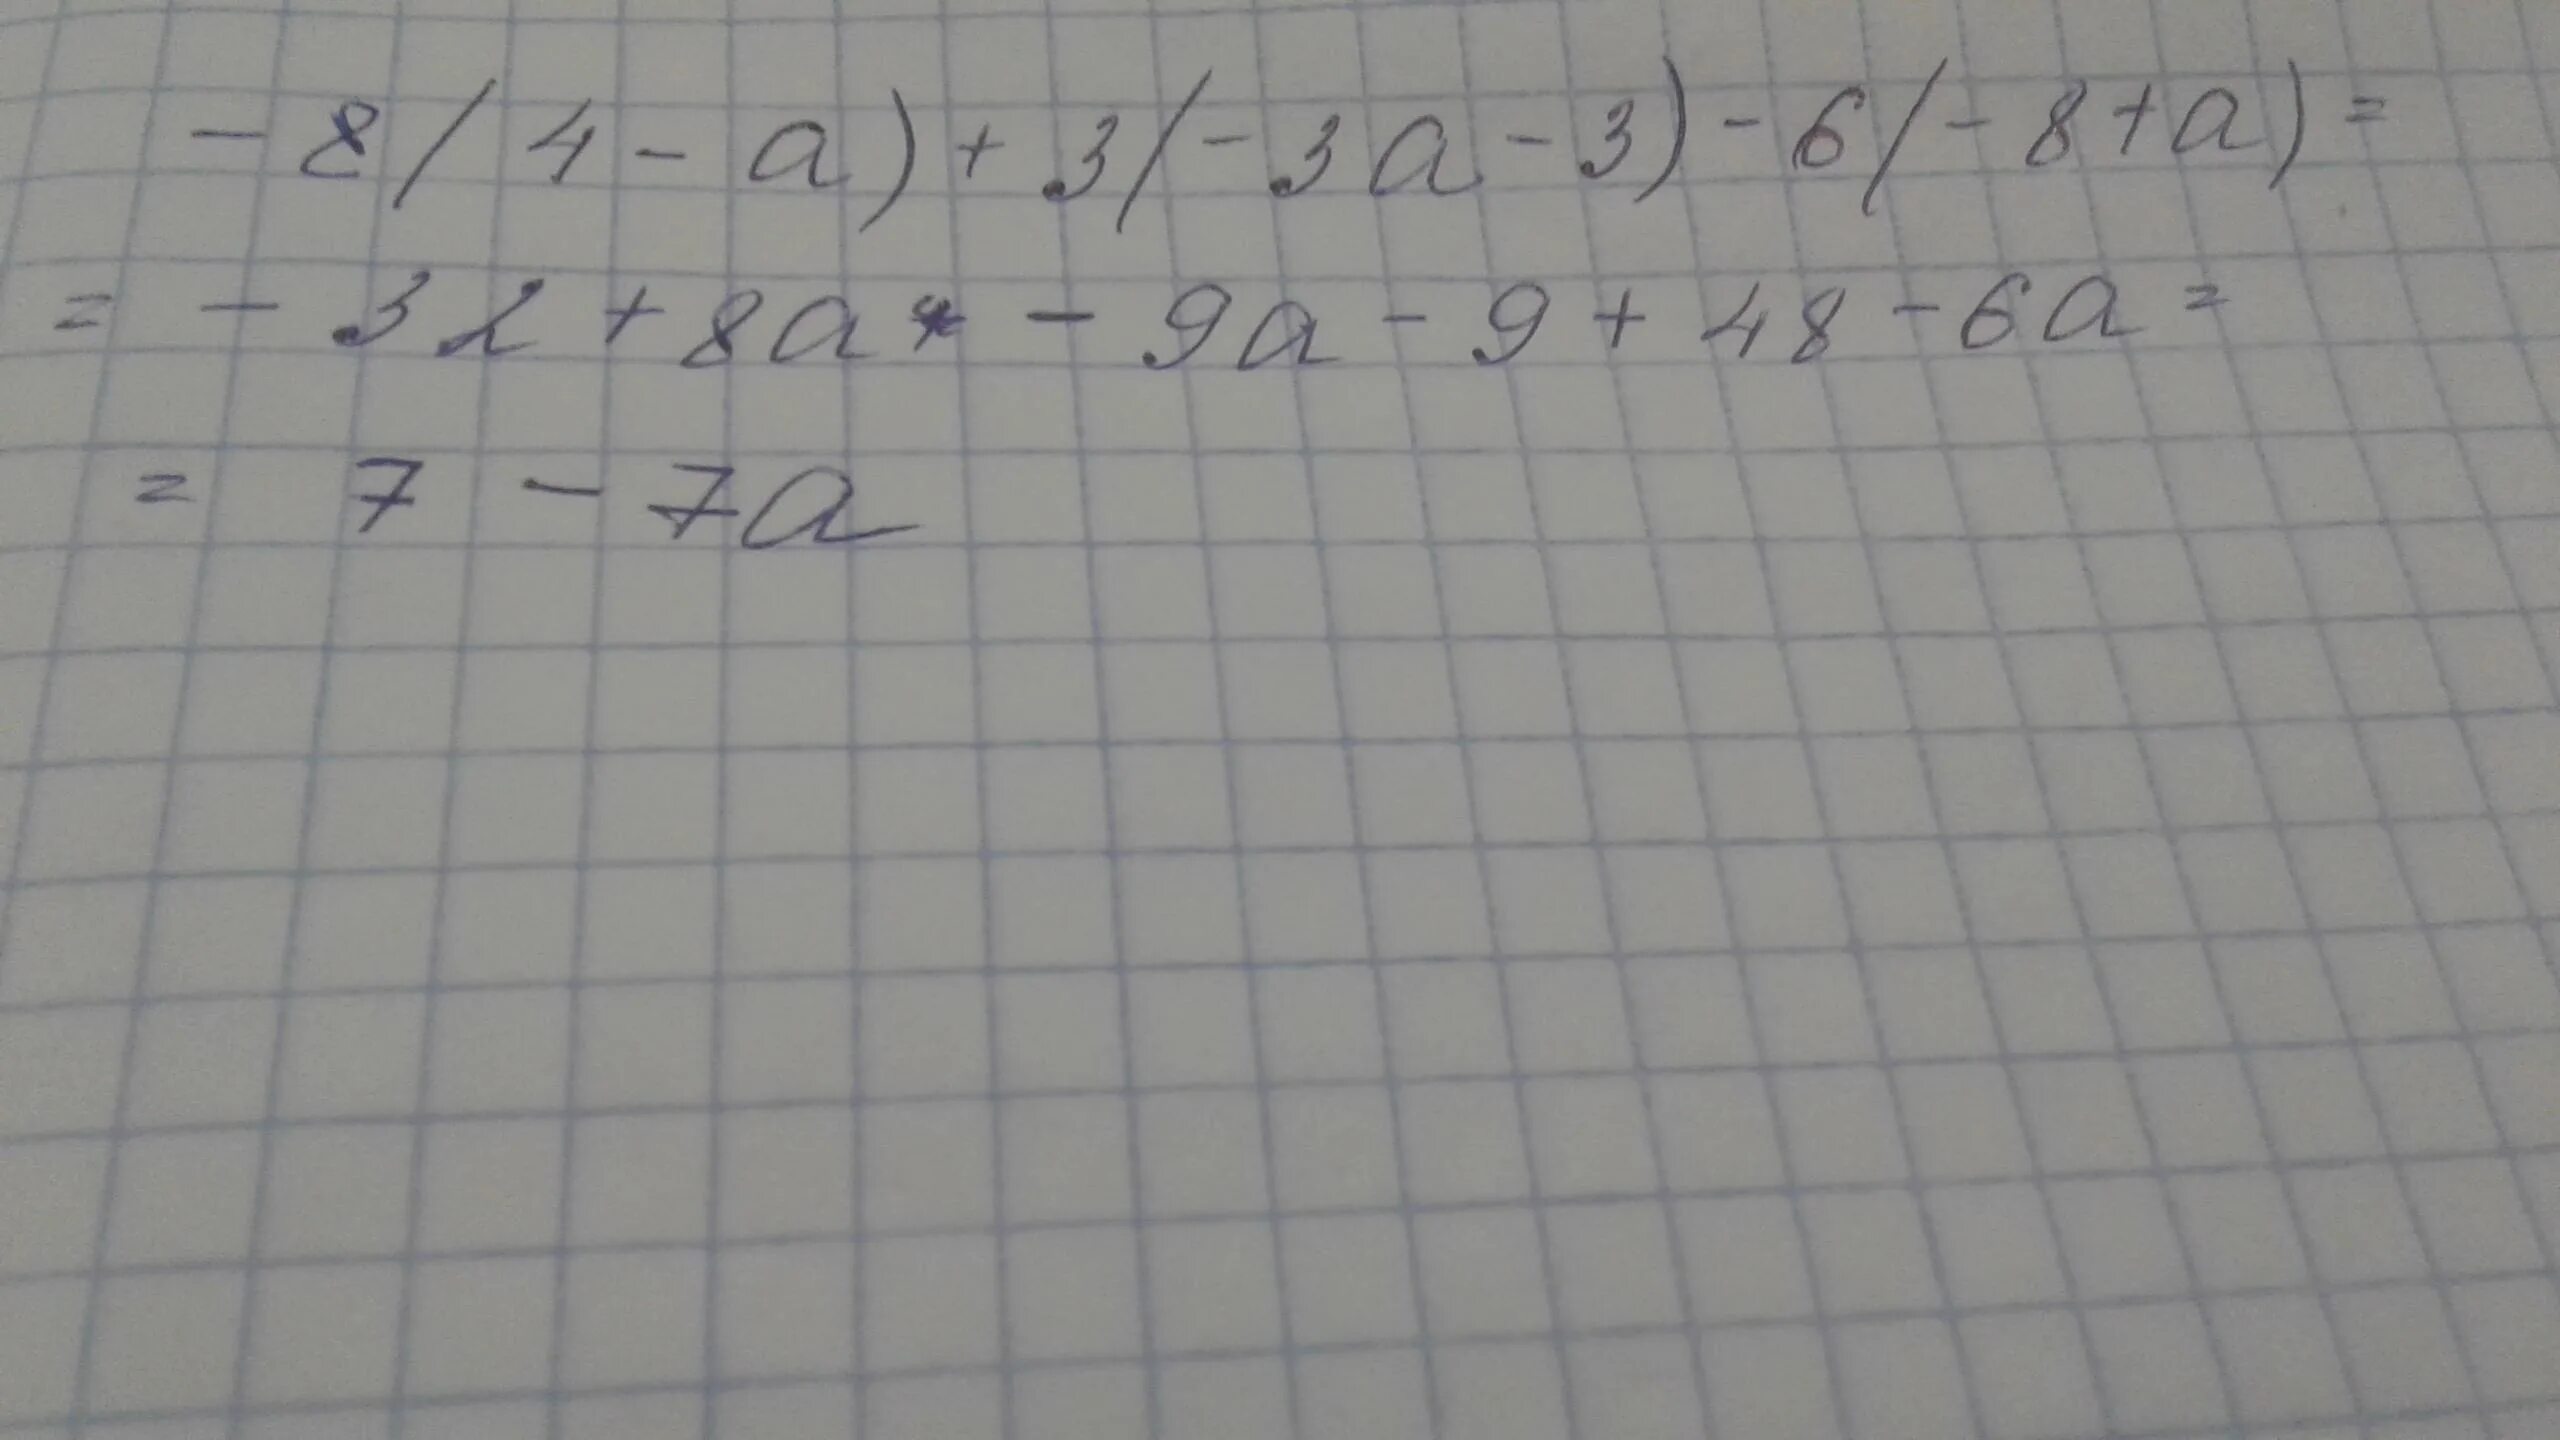 - 8(4 - a) + 3(- 3a - 3) - 6(- 8 + a) =
= - 32 + 8a - 9a - 9 + 48 - 6a =
= 7 - 7a